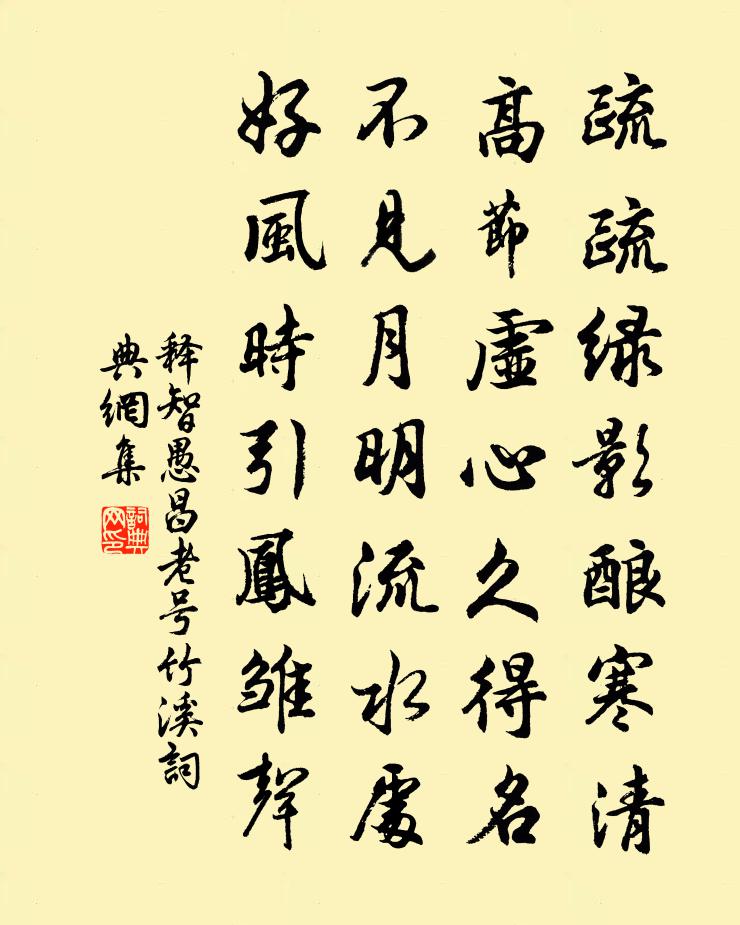 疏疏绿影酿寒清
高節虛心久得名
不見月明流水處
好風時引鳳雛聲
释智愚昌老号竹溪詞
典網集
詞典
网印